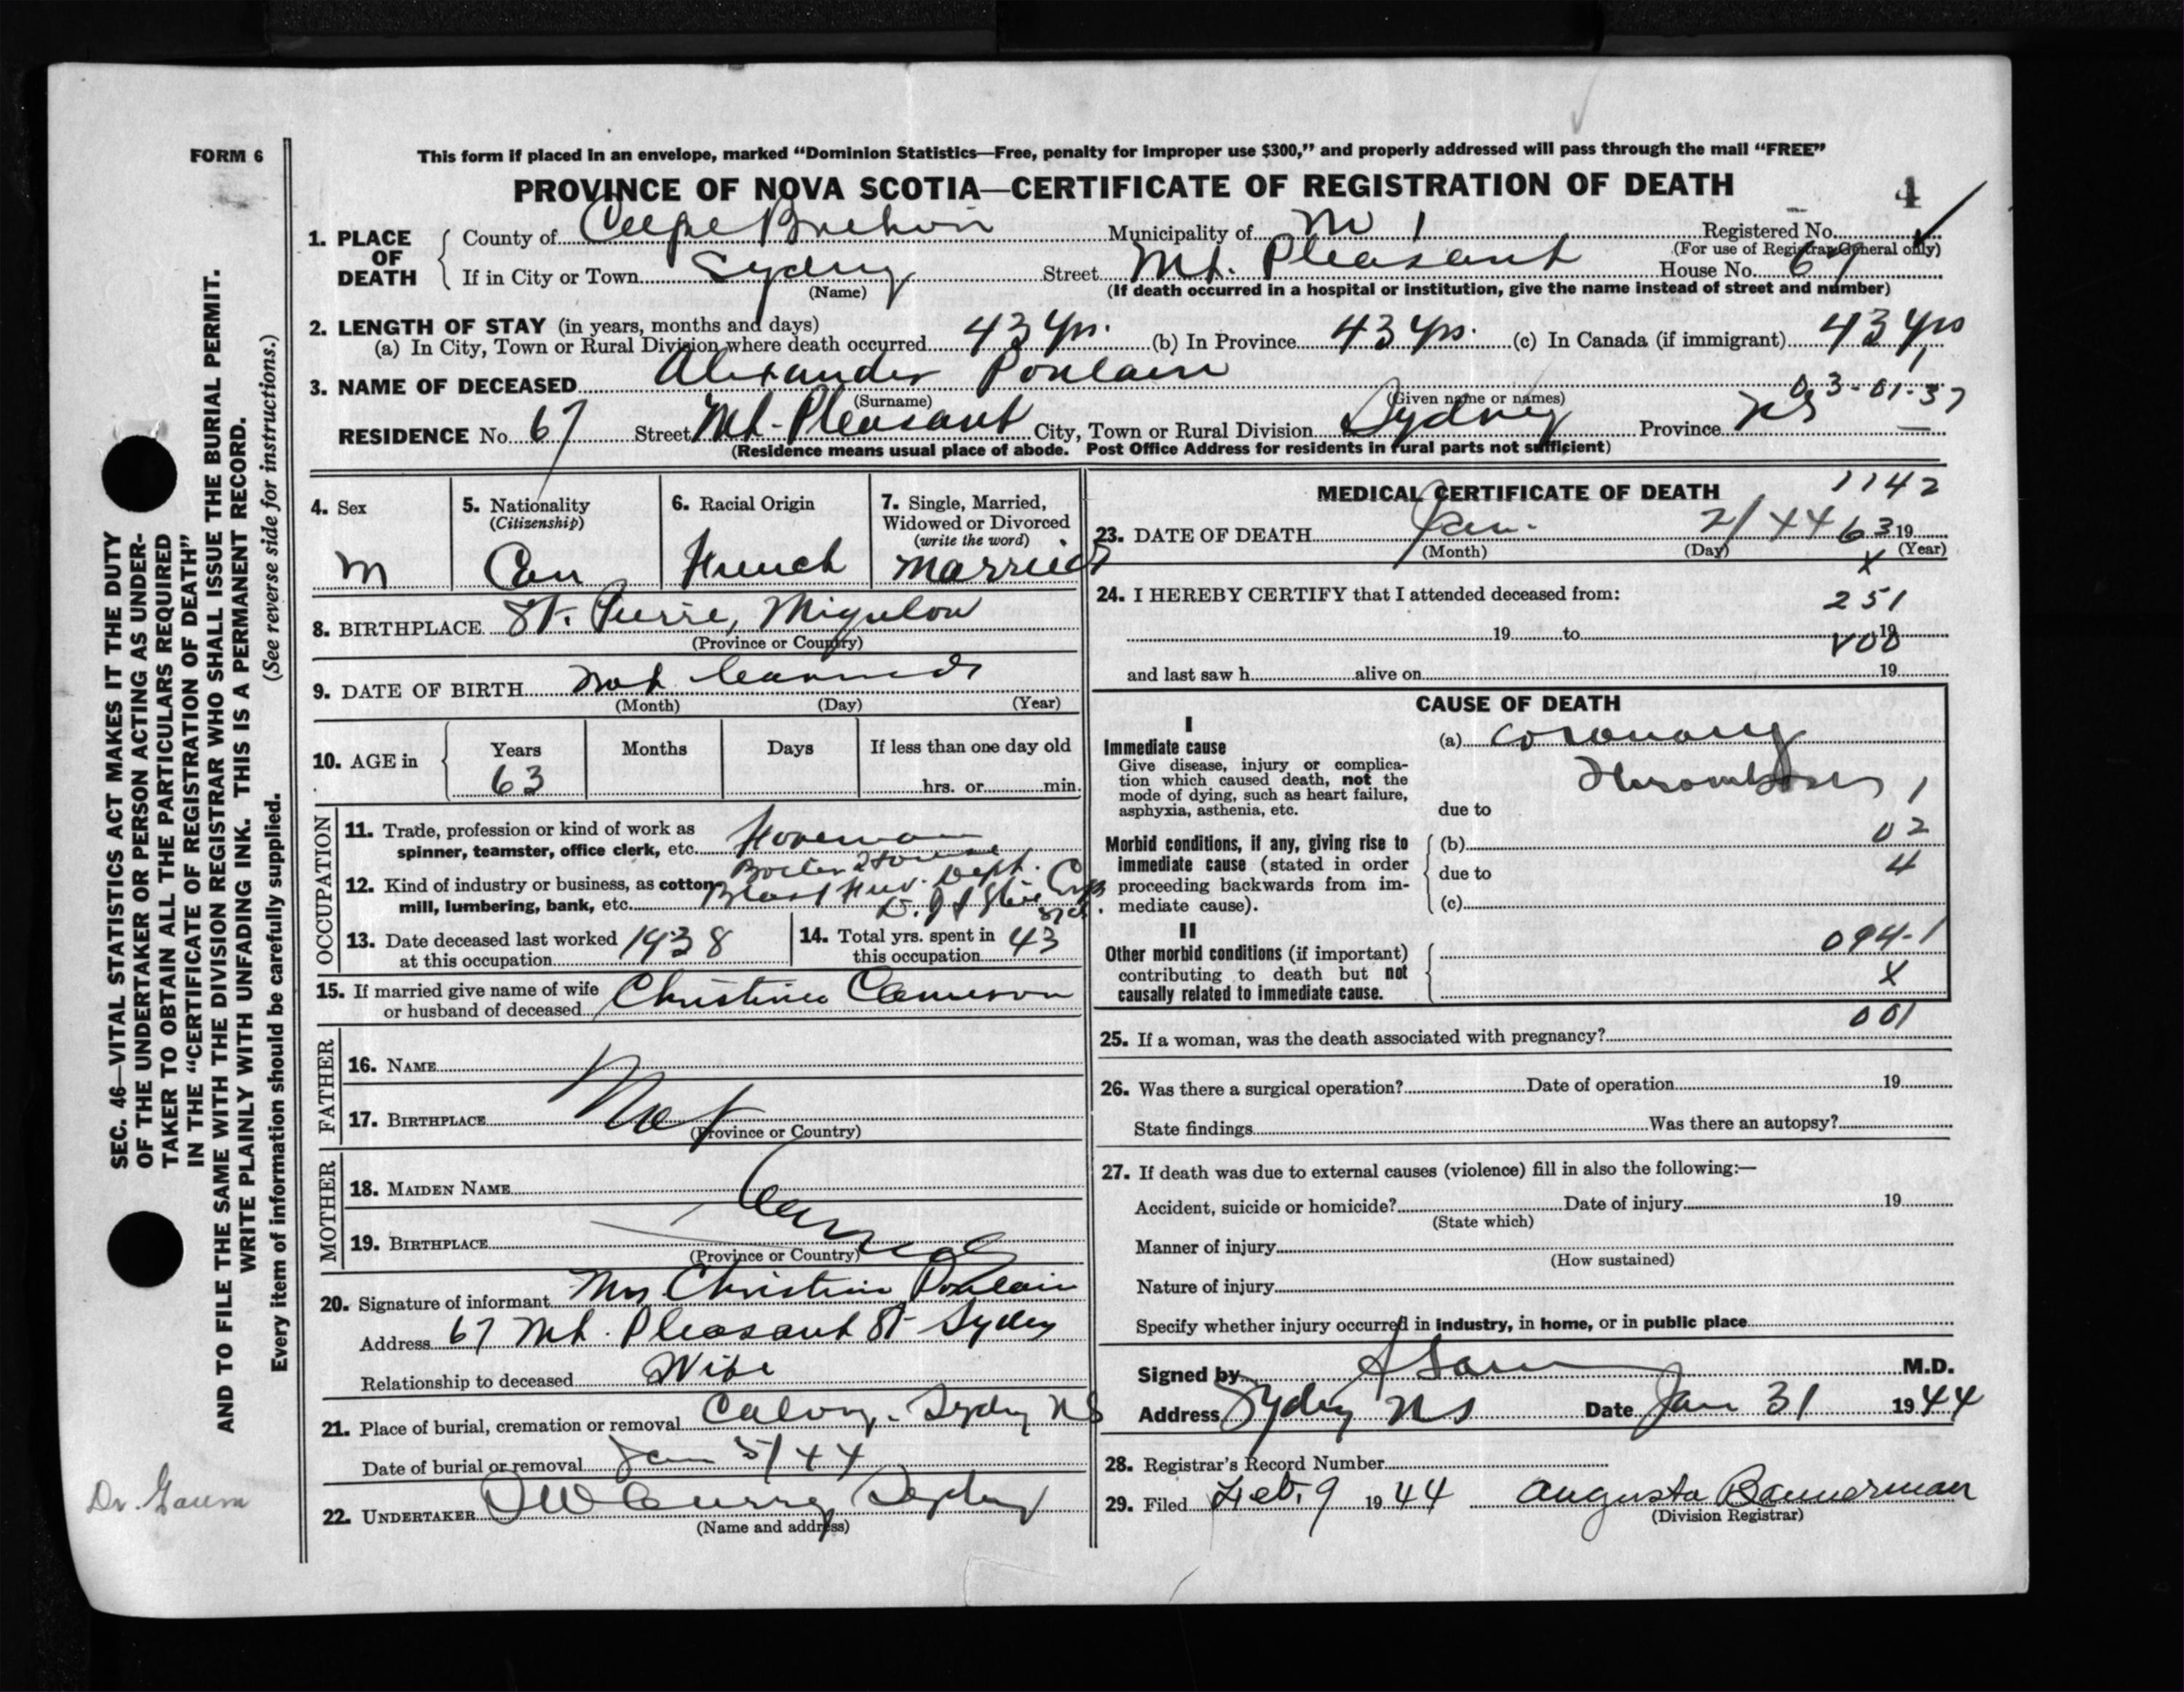 FORM 6
This form if placed in an envelope, marked “Dominion Statistics—Free, penalty for improper use $300,” and properly addressed will pass through the mail “FREE”
PROVINCE OF NOVA SCOTIA—CERTIFICATE OF REGISTRATION OF DEATH
4
1. PLACE OF DEATH
County of Cape Breton Municipality of Registered No.
(For use of Registrar General only)
If in City or Town Sydney Street Mt. Pleasant House No. 67
(Name) (If death occurred in a hospital or institution, give the name instead of street and number)
2. LENGTH OF STAY (in years, months and days)
(a) In City, Town or Rural Division where death occurred 43 yrs. (b) In Province 43 yrs. (c) In Canada (if immigrant) 43 yrs
3. NAME OF DECEASED Alexander Poulain
(Surname) (Given name or names) 03-01-37
RESIDENCE No. 67 Street Mt-Pleasant City, Town or Rural Division Sydney Province NS
(Residence means usual place of abode. Post Office Address for residents in rural parts not sufficient)
4. Sex
M
5. Nationality
(Citizenship)
Can
6. Racial Origin
French
7. Single, Married,
Widowed or Divorced
(write the word)
Married
8. BIRTHPLACE St. Pierre, Miquelon
(Province or Country)
9. DATE OF BIRTH Not learned
(Month) (Day) (Year)
10. AGE in
Years Months Days If less than one day old
63 hrs. or min.
OCCUPATION
11. Trade, profession or kind of work as
spinner, teamster, office clerk, etc. Foreman
Boiler House
12. Kind of industry or business, as cotton
mill, lumbering, bank, etc. Blast Fur. Dept.
13. Date deceased last worked
at this occupation 1938
14. Total yrs. spent in
this occupation 43
15. If married give name of wife
or husband of deceased Christina Cameron
FATHER
16. NAME
17. BIRTHPLACE Not
(Province or Country)
MOTHER
18. MAIDEN NAME
19. BIRTHPLACE Learned
(Province or Country)
20. Signature of informant Mrs Christina Poulain
Address 67 Mt. Pleasant St Sydney
Relationship to deceased Wife
21. Place of burial, cremation or removal Calvary - Sydney NS
Date of burial or removal Jan 5/44
22. UNDERTAKER Curry Sydney
(Name and address)
MEDICAL CERTIFICATE OF DEATH 1142
23. DATE OF DEATH Jan. 2/44 63 19
(Month) (Day) (Year)
X
24. I HEREBY CERTIFY that I attended deceased from:
251
19 to 19
V00
and last saw h alive on 19
CAUSE OF DEATH
I
Immediate cause
Give disease, injury or complica-
tion which caused death, not the
mode of dying, such as heart failure,
asphyxia, asthenia, etc.
(a) Coronary
Thrombosis 1
due to
Morbid conditions, if any, giving rise to
immediate cause (stated in order
proceeding backwards from im-
mediate cause).
(b) 02
due to 4
(c)
II
Other morbid conditions (if important)
contributing to death but not
causally related to immediate cause.
094-1
X
001
25. If a woman, was the death associated with pregnancy?
26. Was there a surgical operation? Date of operation 19
State findings Was there an autopsy?
27. If death was due to external causes (violence) fill in also the following:—
Accident, suicide or homicide? Date of injury 19
(State which)
Manner of injury
(How sustained)
Nature of injury
Specify whether injury occurred in industry, in home, or in public place
Signed by M.D.
Address Sydney NS Date Jan 31 1944
28. Registrar's Record Number
29. Filed Feb. 9 1944 Augusta Bannerman
(Division Registrar)
SEC. 46—VITAL STATISTICS ACT MAKES IT THE DUTY
OF THE UNDERTAKER OR PERSON ACTING AS UNDER-
TAKER TO OBTAIN ALL THE PARTICULARS REQUIRED
IN THE “CERTIFICATE OF REGISTRATION OF DEATH”
AND TO FILE THE SAME WITH THE DIVISION REGISTRAR WHO SHALL ISSUE THE BURIAL PERMIT.
WRITE PLAINLY WITH UNFADING INK. THIS IS A PERMANENT RECORD.
Every item of information should be carefully supplied. (See reverse side for instructions.)
Dr. Gaum